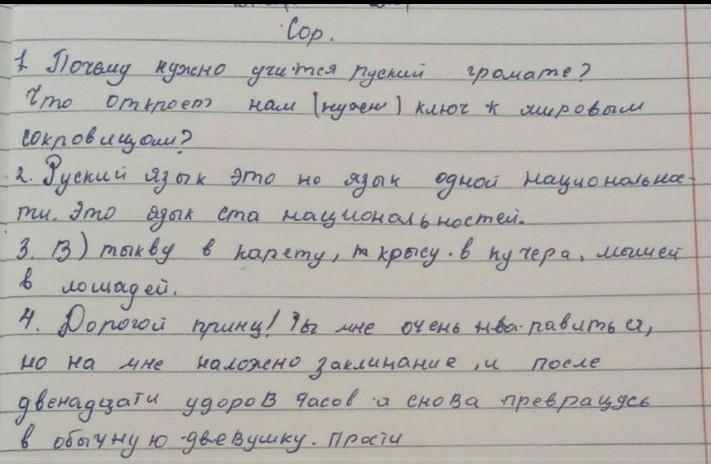 Сор.
1. Почему нужно учится руский громате?
Что откроет нам (нужен) ключ к мировым
сокровищом?
2. Руский язык это не язык одной национальнос-
ти. Это язык ста национальностей.
3. В) тыкву в карету, крысу в кучера, мышей
в лошадей.
4. Дорогой принц! Ты мне очень
но на мне наложено заклинание, и после
двенадцати ударов часов я снова превращусь
в обычную девушку. Прости